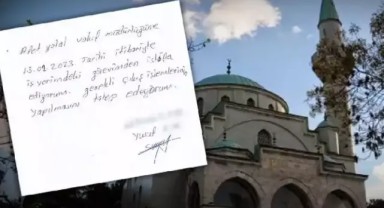 vakıf müdürlüğüne
13.09.2023 Tarihi itibariyle
iş yerimdeki görevimden istifa
ediyorum. gerekli çıkış işlemlerinin
yapılmasını talep ediyorum.
Yusuf